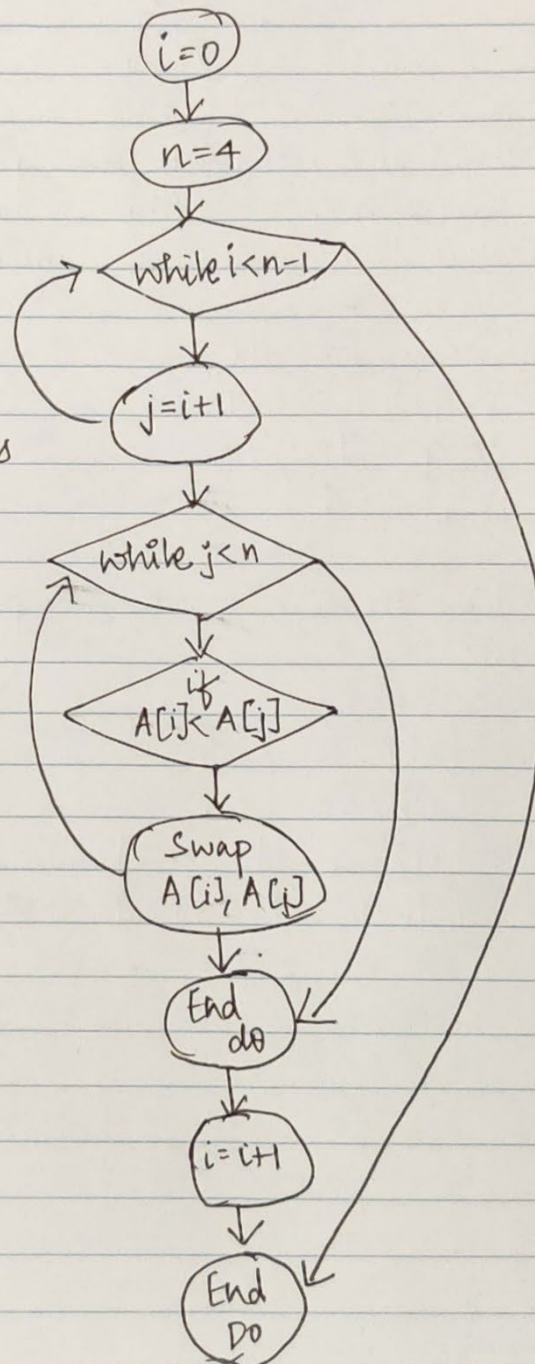 i=0
n=4
while i<n-1
j=i+1
s
while j<n
if
A[i]<A[j]
Swap
A[i], A[j]
End
do
i=i+1
End
DO